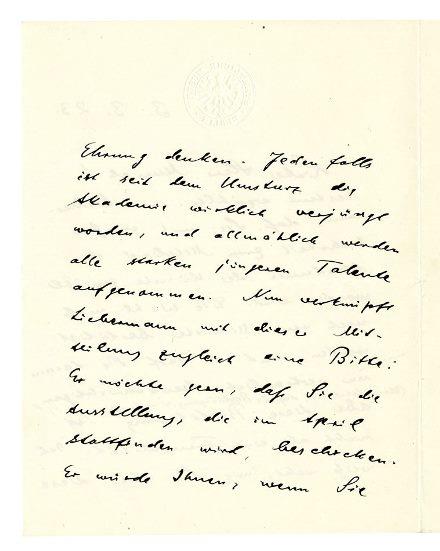 Ehrung denken. Jedenfalls
ist seit dem Umsturz die
Akademie wirklich verjüngt
worden, und allmählich werden
alle starken jüngeren Talente
aufgenommen. Nun verknüpft
Liebermann mit dieser Mit-
teilung zugleich eine Bitte:
Er möchte gern, daß Sie die
Ausstellung, die im April
stattfinden wird, beschicken.
Er würde Ihnen, wenn Sie